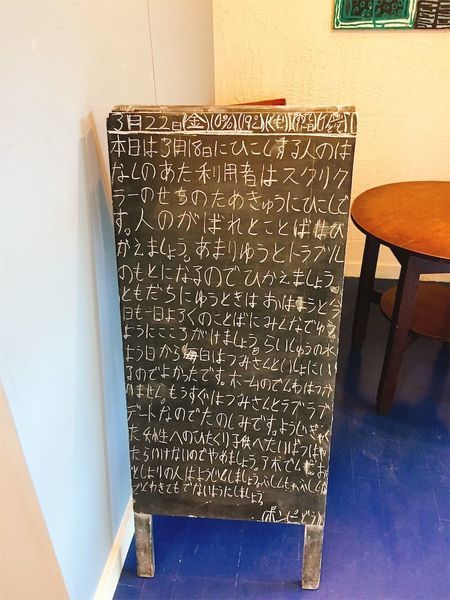 3月22日(金)(0%)(19℃)(くもり)
本日は3月18日にひこしする人のは
なしのあた利用者はスクリク
ラーのせちのためきゅうにひこしで
す。人のがばれとことばはひ
かえましょう。あまりゆうとトラブル
のもとになるのでひかえましょう。
ともだちにゆうときはおはようと今
日も一日よろくのことばにみんなでゆう
ようにこころがけましょう。らいしゅうの水
よう日から毎日はつみさんといしょにい
るのでよかったです。ホームのでんわはつか
りません。もうすぐはつみさんとラブラブ
デートなのでたのしみです。
た幼生へのひくり子供へたいばつはや
たらいけないのでやめましょう。
としよりの人はよういしましょう。
でんわきてもでないようにしましょう。